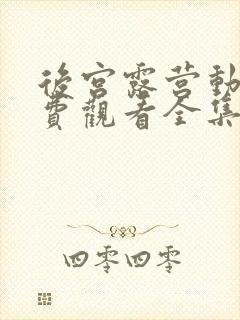 後宮露营動
費觀看全集
四零四零